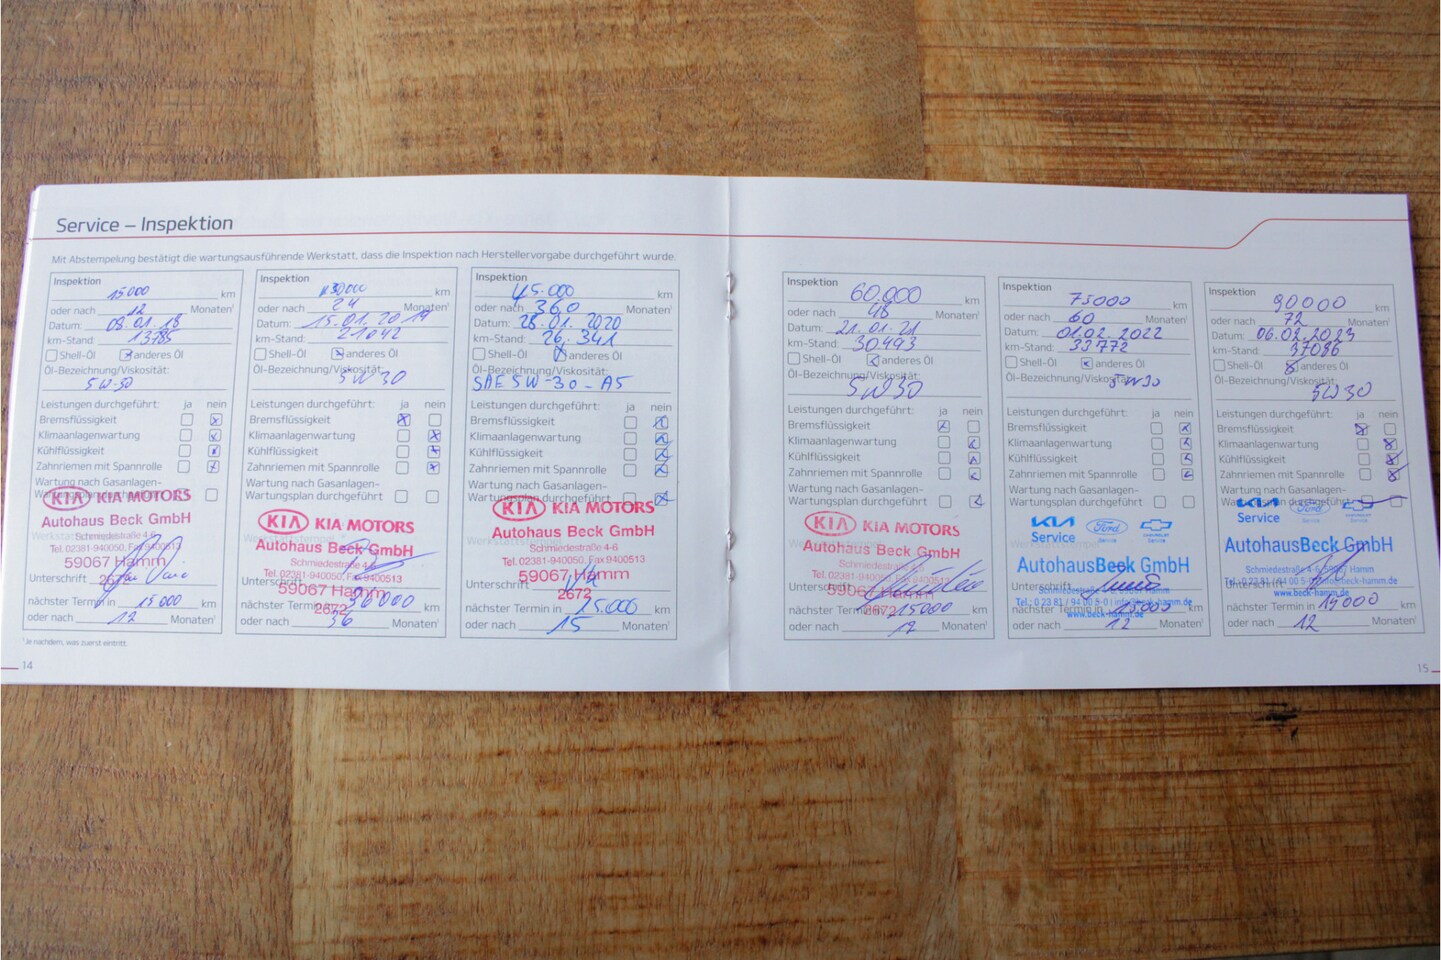 Service – Inspektion
Mit Abstempelung bestätigt die wartungsausführende Werkstatt, dass die Inspektion nach Herstellervorgabe durchgeführt wurde.
Inspektion
15000 km
oder nach 12 Monaten¹
Datum: 08.01.18
km-Stand: 13185
Shell-Öl anderes Öl
Öl-Bezeichnung/Viskosität:
5W-30
Leistungen durchgeführt: ja nein
Bremsflüssigkeit
Klimaanlagenwartung
Kühlflüssigkeit
Zahnriemen mit Spannrolle
Wartung nach Gasanlagen-
KIA KIA MOTORS
Autohaus Beck GmbH
Schmiedestraße 4-6
Tel. 02381-940050, Fax 9400513
59067
Unterschrift
nächster Termin in 15000 km
oder nach 12 Monaten¹
¹Je nachdem, was zuerst eintritt.
14
Inspektion
30000 km
oder nach 24 Monaten¹
Datum: 15.01.2019
km-Stand: 21042
Shell-Öl anderes Öl
Öl-Bezeichnung/Viskosität:
5W30
Leistungen durchgeführt: ja nein
Bremsflüssigkeit
Klimaanlagenwartung
Kühlflüssigkeit
Zahnriemen mit Spannrolle
Wartung nach Gasanlagen-
Wartungsplan durchgeführt
KIA KIA MOTORS
Autohaus Beck GmbH
Schmiedestraße 4-6
Tel. 02381-940050, Fax 9400513
Unterschrift
59067 Hamm
2672
nächster Termin in 30000 km
oder nach 36 Monaten¹
Inspektion
45.000 km
oder nach 360 Monaten¹
Datum: 28.01.2020
km-Stand: 26.341
Shell-Öl anderes Öl
Öl-Bezeichnung/Viskosität:
SAE 5W-30-A5
Leistungen durchgeführt: ja nein
Bremsflüssigkeit
Klimaanlagenwartung
Kühlflüssigkeit
Zahnriemen mit Spannrolle
Wartung nach Gasanlagen-
Wartungsplan durchgeführt
KIA KIA MOTORS
Autohaus Beck GmbH
Schmiedestraße 4-6
Tel. 02381-940050, Fax 9400513
59067 Hamm
Unterschrift
2672
nächster Termin in 15.000 km
oder nach 15 Monaten¹
Inspektion
60.000 km
oder nach 48 Monaten¹
Datum: 21.01.21
km-Stand: 30493
Shell-Öl anderes Öl
Öl-Bezeichnung/Viskosität:
5W30
Leistungen durchgeführt: ja nein
Bremsflüssigkeit
Klimaanlagenwartung
Kühlflüssigkeit
Zahnriemen mit Spannrolle
Wartung nach Gasanlagen-
Wartungsplan durchgeführt
KIA KIA MOTORS
Autohaus Beck GmbH
Schmiedestraße 4-6
Unterschrift
2672
nächster Termin 15000 km
oder nach Monaten¹
Inspektion
75000 km
oder nach 60 Monaten¹
Datum: 01.02.2022
km-Stand: 33772
Shell-Öl anderes Öl
Öl-Bezeichnung/Viskosität:
5W30
Leistungen durchgeführt: ja nein
Bremsflüssigkeit
Klimaanlagenwartung
Kühlflüssigkeit
Zahnriemen mit Spannrolle
Wartung nach Gasanlagen-
Wartungsplan durchgeführt
KIA Ford CHEVROLET
Service Service Service
AutohausBeck GmbH
Unterschrift
nächster Termin in 15000 km
www.beck-hamm.de
oder nach 12 Monaten¹
Inspektion
90000 km
oder nach 72 Monaten¹
Datum: 06.02.2023
km-Stand: 37086
Shell-Öl anderes Öl
Öl-Bezeichnung/Viskosität:
5W30
Leistungen durchgeführt: ja nein
Bremsflüssigkeit
Klimaanlagenwartung
Kühlflüssigkeit
Zahnriemen mit Spannrolle
Wartung nach Gasanlagen-
Wartungsplan durchgeführt
KIA Ford
Service Service Service
AutohausBeck GmbH
Schmiedestraße 4-6, 59067 Hamm
Unterschrift
www.beck-hamm.de
nächster Termin in 15000 km
oder nach 12 Monaten¹
15